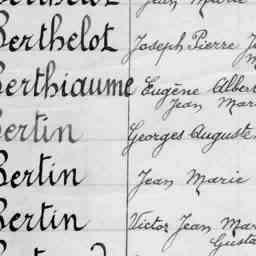 Berthelot Joseph Pierre
Berthiaume Eugène Albert
Jean Mari
Bertin Georges Auguste
Bertin Jean Marie
Bertin Victor Jean Mar
Gusta